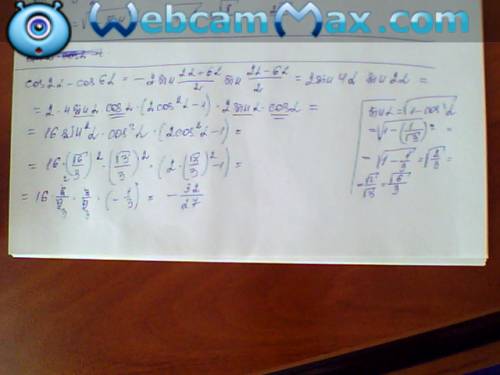 WebcamMax.com
cos2α - cos6α = -2sin (2α+6α)/2 sin (2α-6α)/2 = 2sin4α sin2α =
= 2·4sinα cosα·(2cos²α-1)·2sinα·cosα =
= 16 sin²α·cos²α·(2cos²α-1) =
= 16·(√6/3)²·(√3/3)²·(2·(√3/3)²-1) =
= 16 · · (-1/3) = -32/27
sinα = √1-cos²α
= √1-(1/√3)² =
= √1-1/3 = √2/3 =
= √2/√3 = √6/3